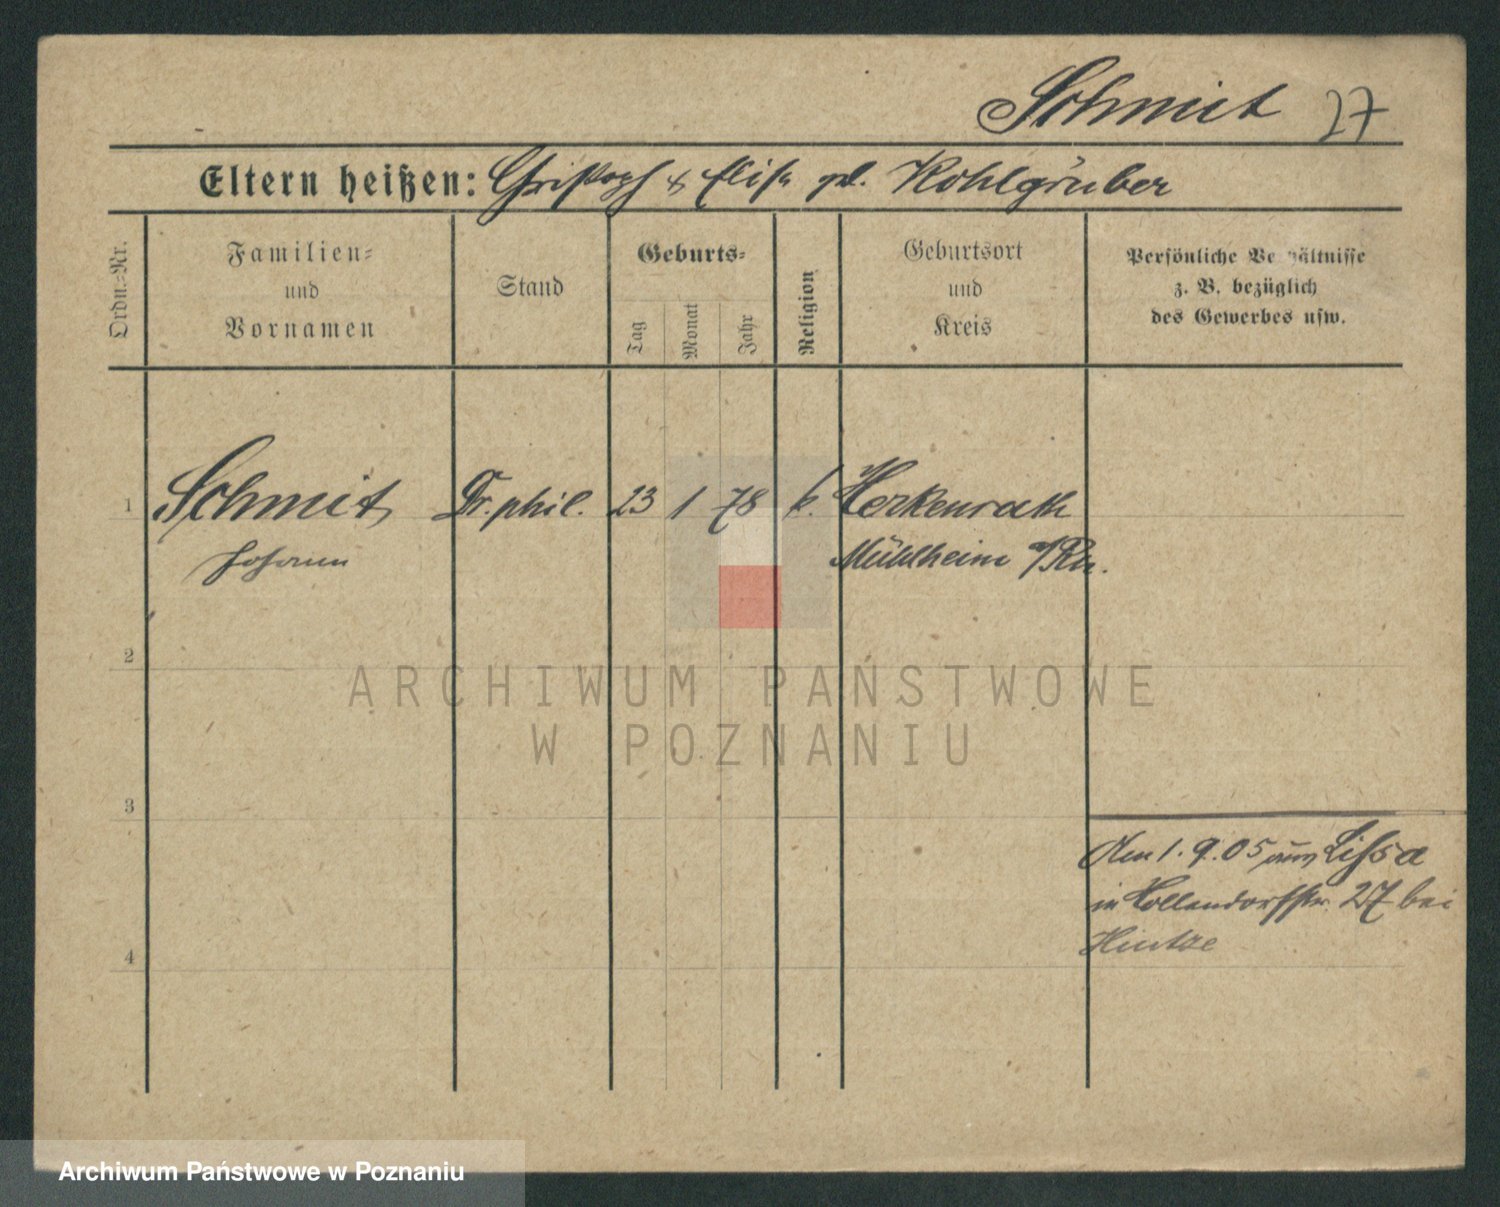 Schmit 27
Eltern heißen: Christoph & Elise geb. Kohlgrüber
Ordn.-Nr.
Familien-
und
Vornamen
Stand
Geburts-
Tag
Monat
Jahr
Religion
Geburtsort
und
Kreis
Persönliche Verhältnisse
z. B. bezüglich
des Gewerbes usw.
1 Schmit, Dr. phil. 23 1 78 k. Herkenrath
Johann Mühlheim a/Rh.
2
ARCHIWUM PAŃSTWOWE
W POZNANIU
3
Am 1.9.05 aus Lissa
in Hollendorfstr. 27 bei
Hintze
4
Archiwum Państwowe w Poznaniu